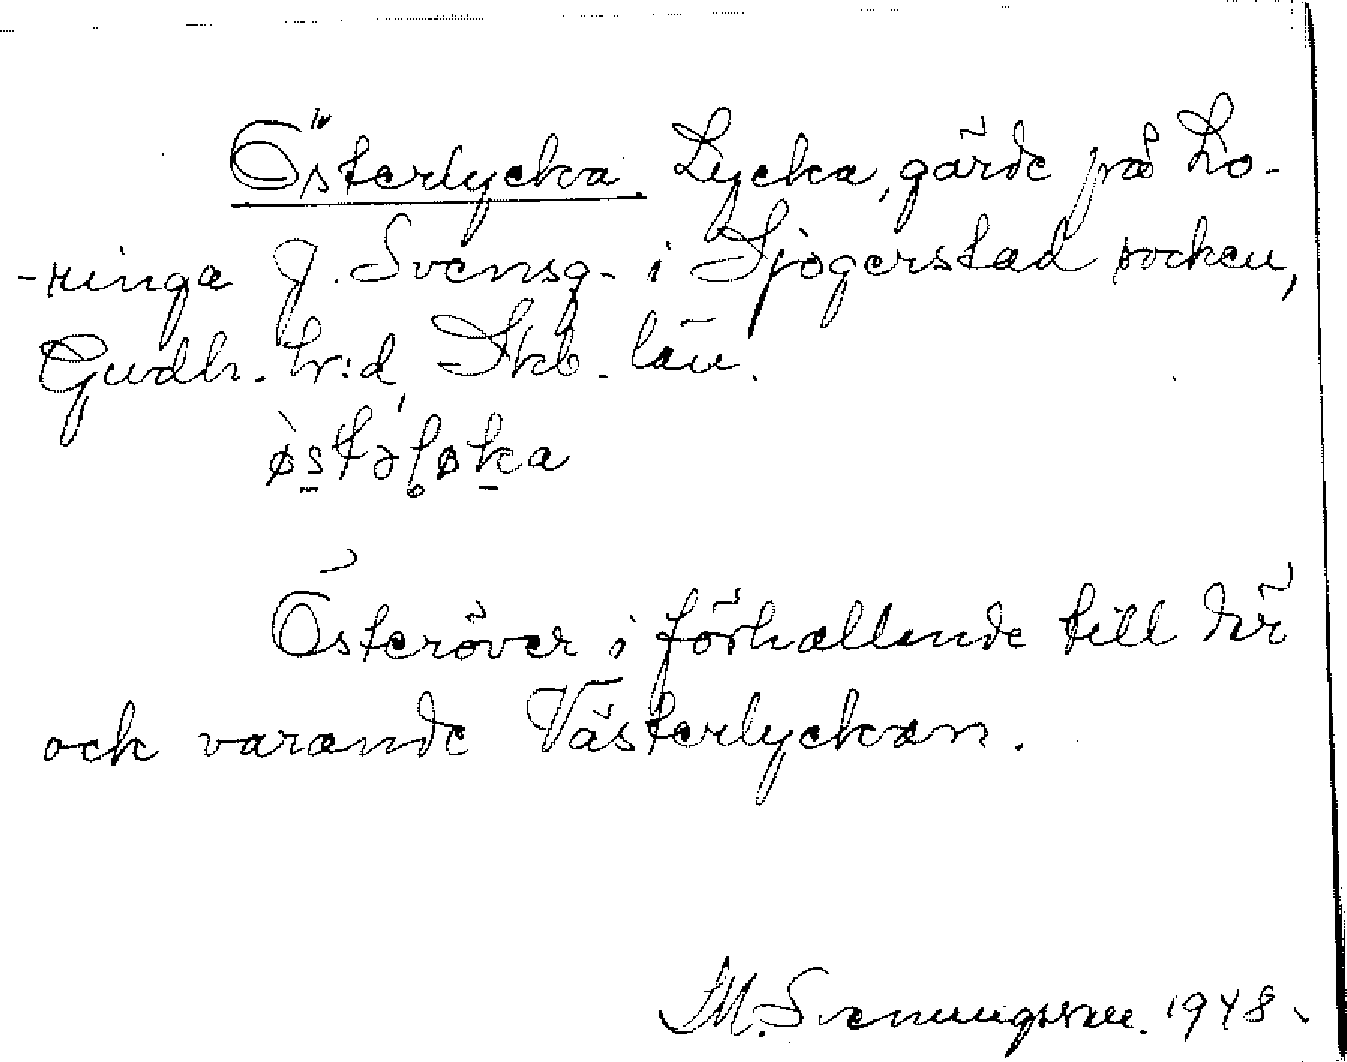 Österlycka. Lycka, gärde på Lo-
-ringa J. Svensg- i Sjogerstad socken,
Gudh. hr:d, Skb. län.
østəløka
Österöver i förhallende till där
ock varande Västerlyckan.
M. Svenungsson. 1948.